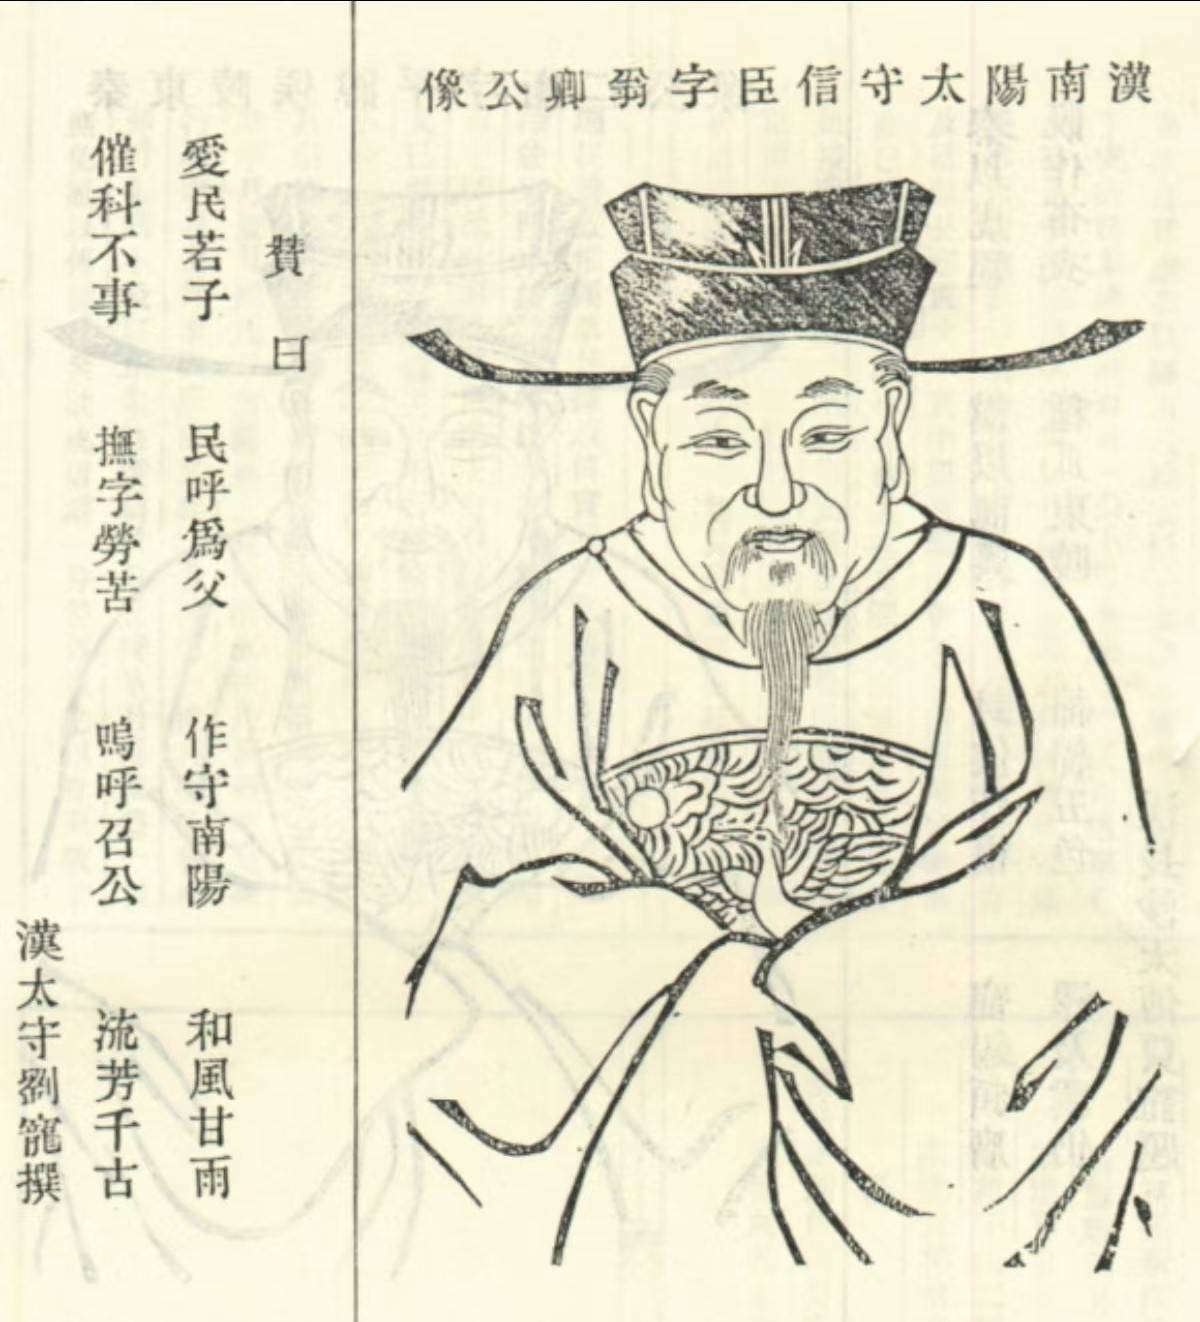 漢南陽太守信臣字翁卿公像
贊曰
愛民若子 民呼爲父 作守南陽 和風甘雨
催科不事 撫字勞苦 嗚呼召公 流芳千古
漢太守劉寵撰